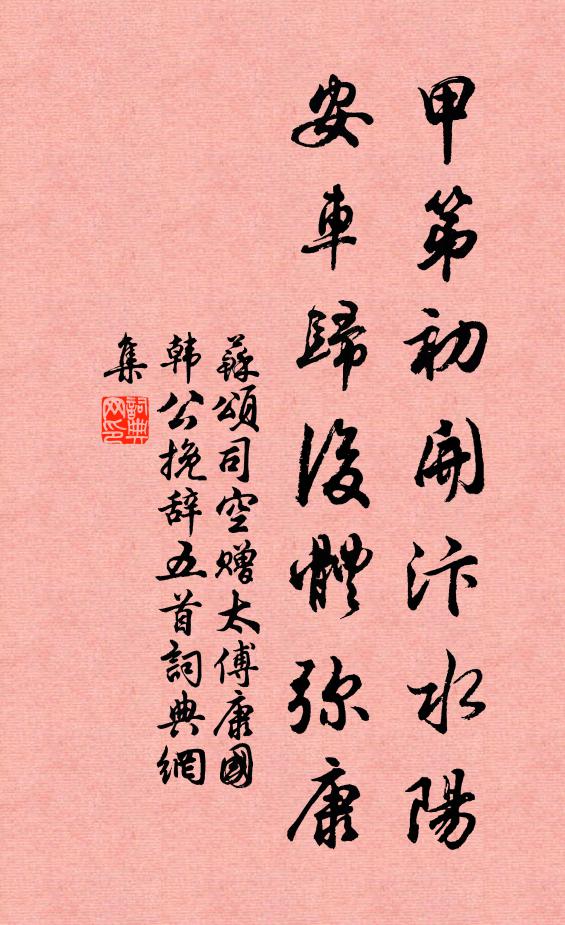 甲第初開汴水陽
安車歸後體弥康
蘇頌司空贈太傅康國
韩公挽辞五首詞典網
集
詞典網印